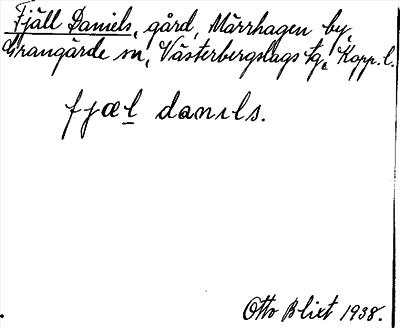 Fjäll Daniels, gård, Märrhagen by,
Grangärde sn, Västerbergslags tg, Kopp. l.
fjæl danɩls.
Otto Blixt 1938.